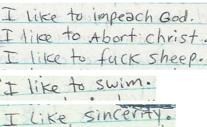 I like to impeach God.
I like to Abort christ.
I like to fuck sheep.
I like to swim.
I like sincerity.